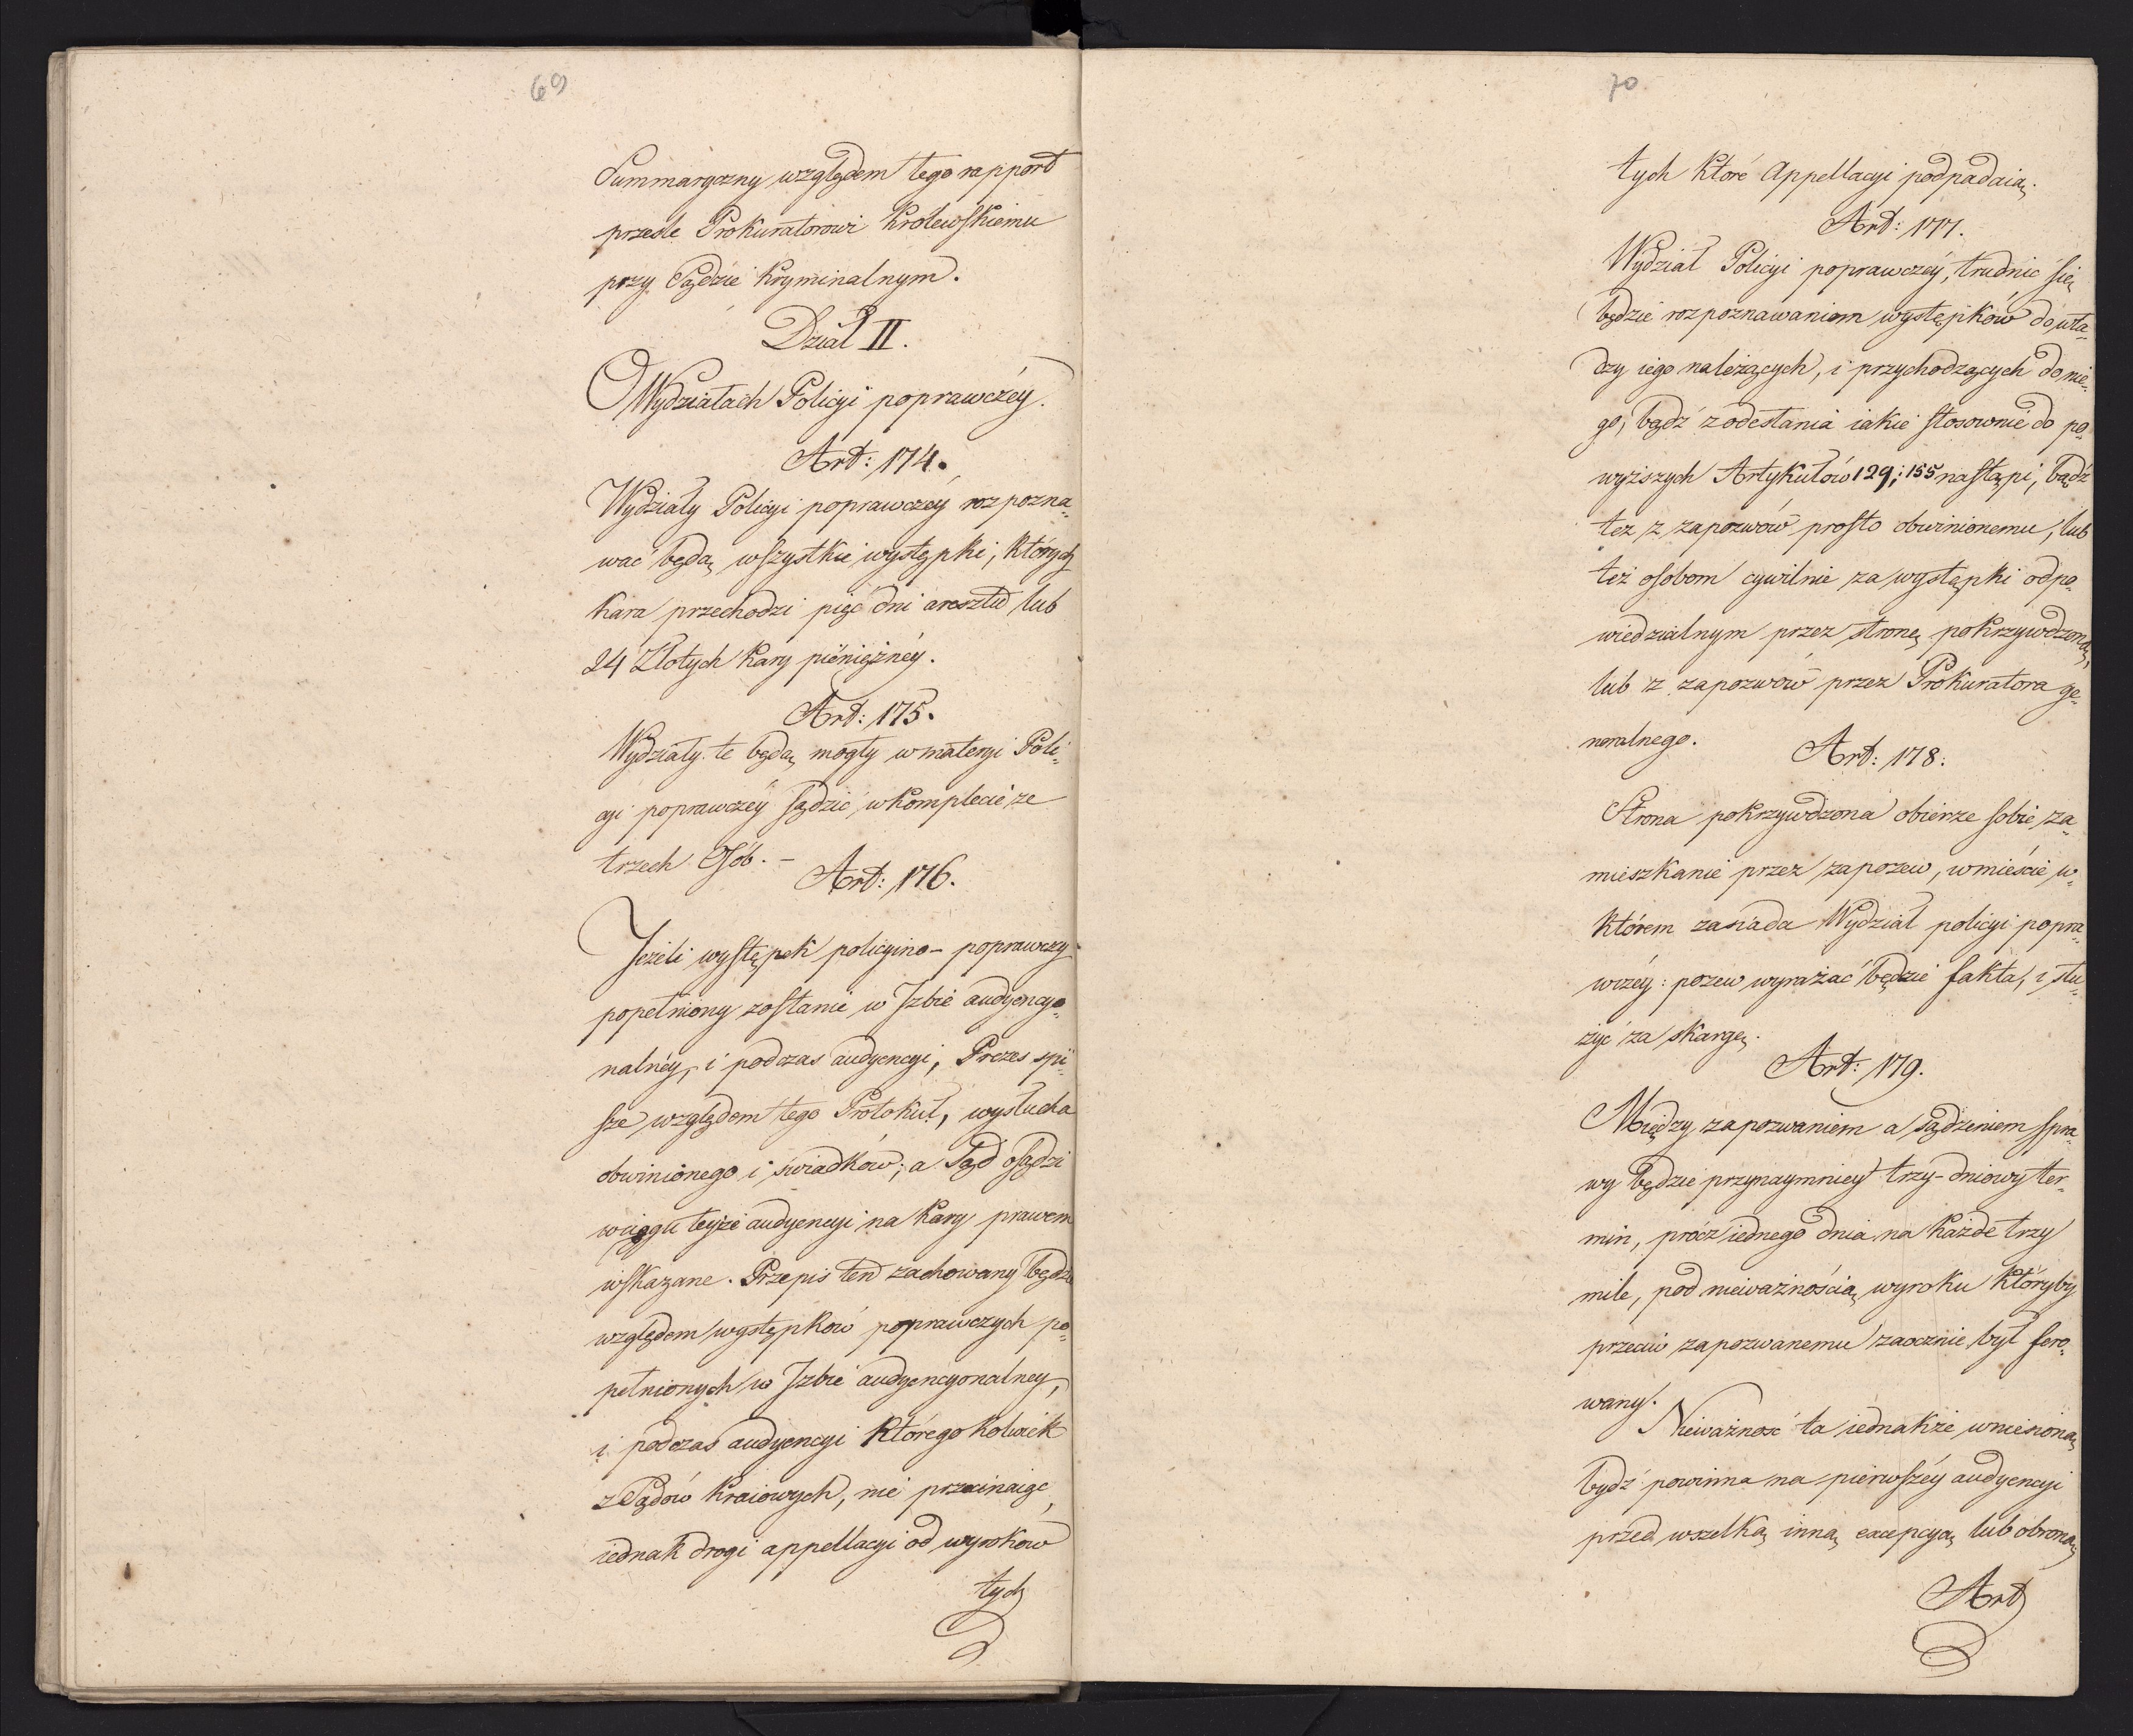 69
Summaryczny względem tego rapport
prześle Prokuratorowi Królewskiemu
przy Sądzie Kryminalnym.
Dział II.
O Wydziałach Policyi poprawczéy.
Art: 174.
Wydziały Policyi poprawczéy rozpozna„
wać będą wszystkie występki, których
kara przechodzi pięć dni aresztu lub
24 Złotych kary pieniężnéy.
Art: 175.
Wydziały te będą mogły w materyi Poli„
cyi poprawczéy sądzić w komplecie ze
trzech Osób. –
Art: 176.
Jeżeli występek policyino-poprawczy
popełniony zostanie w Izbie audyencyo„
nalnéy, i podczas audyencyi, Prezes spi„
sze względem tego Protokuł, wysłucha
obwinionego i świadków; a Sąd osądzi
w ciągu teyże audyencyi na kary prawem
wskazane. Przepis ten zachowany będzie
względem występków poprawczych po„
pełnionych w Izbie audyencyonalney,
i podczas audyencyi któregokolwiek
z Sądów kraiowych, nie przecinaiąc
iednak drogi appellacyi od wyroków
tych
70
tych które Appellacyi podpadaią.
Art: 177.
Wydział Policyi poprawczéy, trudnić się
będzie rozpoznawaniem występków do wła„
dzy iego należących, i przychodzących do nie„
go, bądź z odesłania iakie stosownie do po„
wyższych Artykułów 129, i 155 nastąpi, bądź
też z zapozwów prosto obwinionemu, lub
też osobom cywilnie za występki odpo„
wiedzialnym przez stronę pokrzywdzoną,
lub z zapozwów przez Prokuratora ge„
neralnego.
Art: 178.
Strona pokrzywdzona obierze sobie za„
mieszkanie przez zapozew, w mieście w„
którem zasiada Wydział policyi popra„
wczéy: pozew wyrażać będzie fakta, i słu„
żyć za skargę.
Art: 179.
Między zapozwaniem a sądzeniem spra„
wy będzie przynaymniey trzy-dniowy ter„
min, prócz iednego dnia na każde trzy
mile, pod nieważnością wyroku któryby
przeciw zapozwanemu zaocznie był fero„
wany.
Nieważność ta iednakże wniesioną
bydź powinna na pierwszéy audyencyi
przed wszelką inną excepcyą lub obroną.
Art